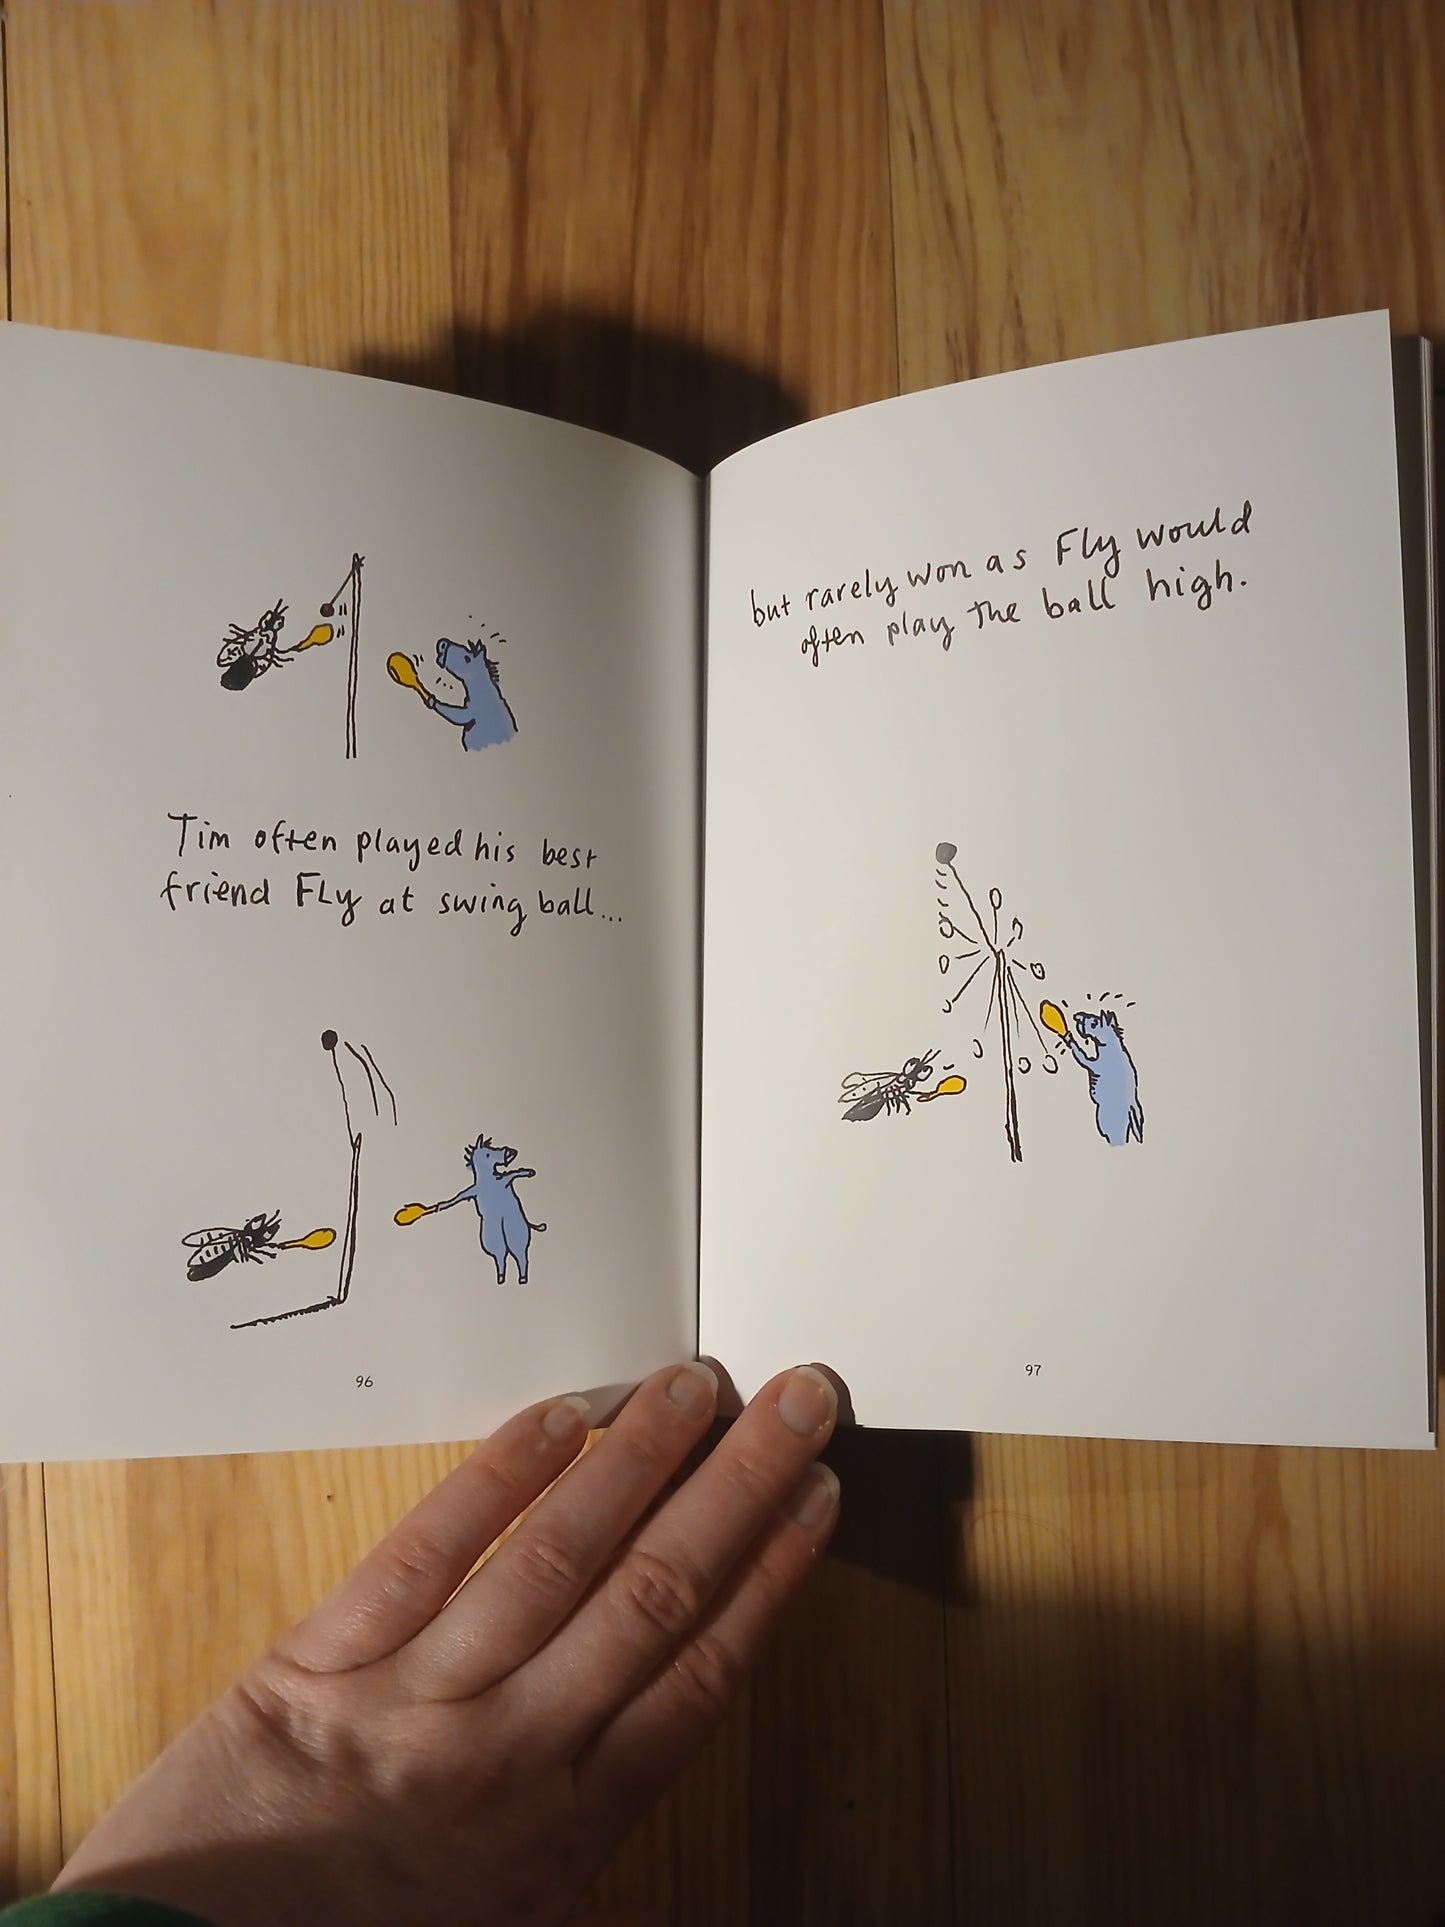 Tim often played his best
friend Fly at swing ball...
96
but rarely won as Fly would
often play the ball high.
97